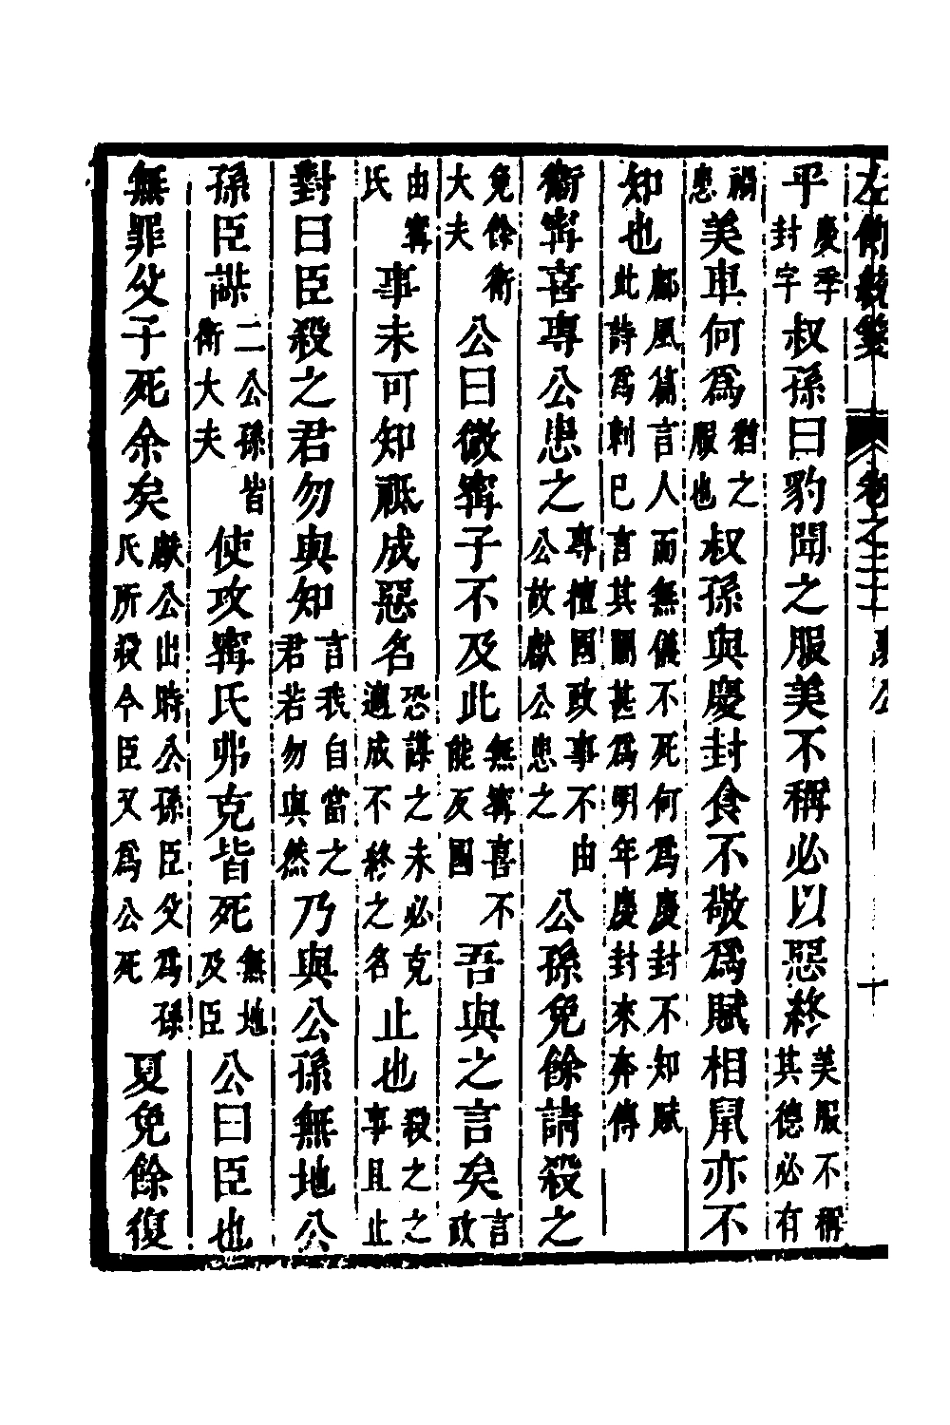 左傳
平慶季封字叔孫曰豹聞之服美不稱必以惡終美服不稱其德必有
禍患美車何爲猶之服也叔孫與慶封食不敬爲賦相鼠亦不
知也鄘風篇言人而無儀不死何爲慶封不知賦此詩爲刺己言其闇甚爲明年慶封來奔傳
衞甯喜專公患之專擅國政事不由公故獻公患之公孫免餘請殺之
免餘衛大夫公曰微甯子不及此無甯喜不能反國吾與之言矣言政
由甯氏事未可知祗成惡名恐謀之未必克適成不終之名止也殺之之事且止
對曰臣殺之君勿與知言我自當之君若勿與然乃與公孫無地公
孫臣謀二公孫皆衛大夫使攻甯氏弗克皆死無地及臣公曰臣也
無罪父子死余矣獻公出時公孫臣父爲孫氏所殺今臣又爲公死夏免餘復